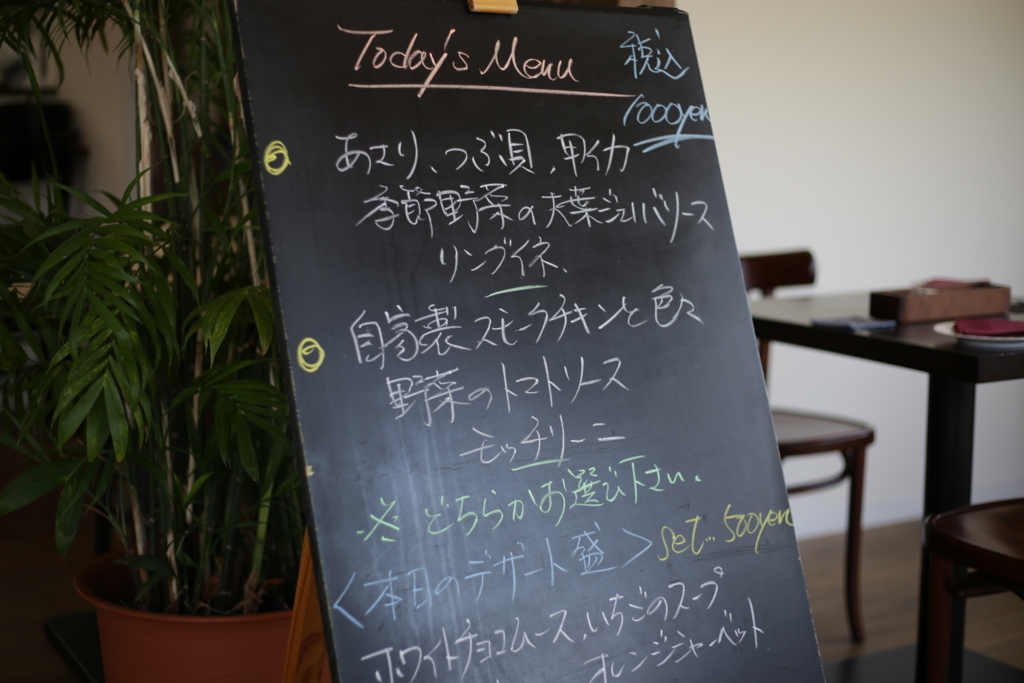 Today's Menu
税込
1000yen
あさり、つぶ貝、甲イカ
季節野菜の大葉ジェノバソース
リングイネ、
自家製スモークチキンと色々
野菜のトマトソース
モッチリーニ
※どちらかお選び下さい。
＜本日のデザート盛＞set… 500yen
ホワイトチョコムース、いちごのスープ
オレンジシャーベット